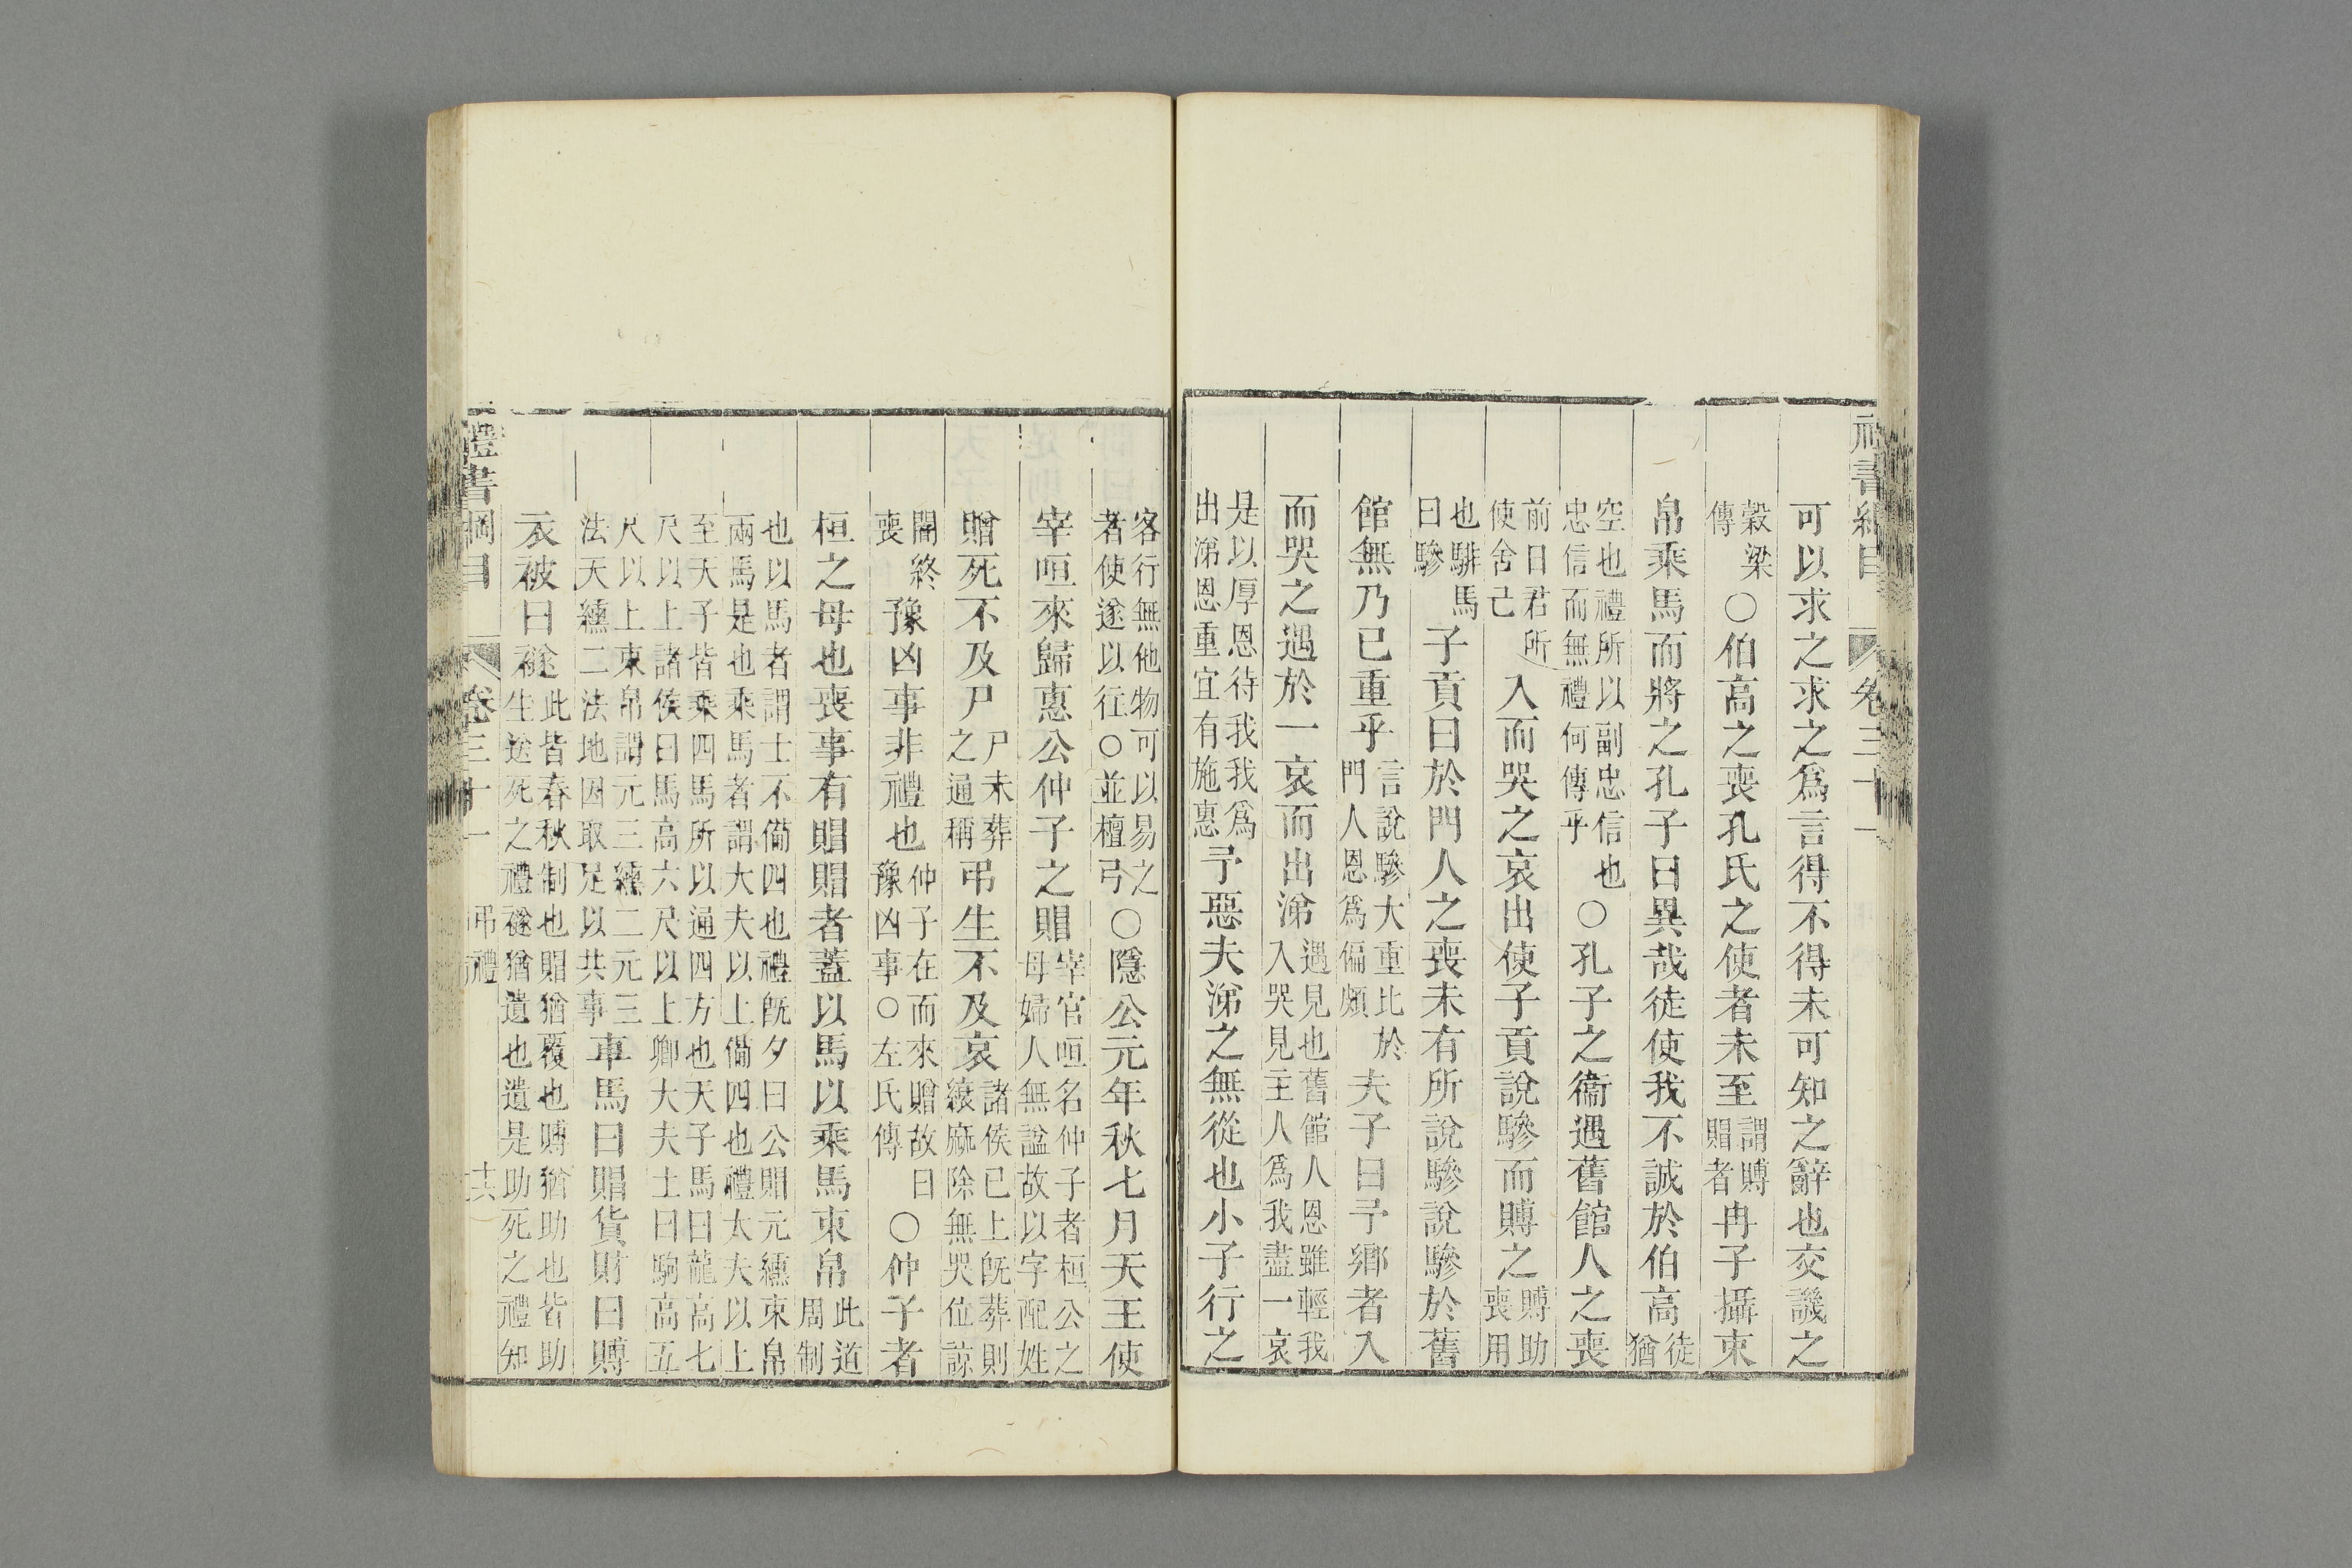 禮書綱目 卷三十一
可以求之求之爲言得不得未可知之辭也交譏之
穀梁傳○伯高之喪孔氏之使者未至謂賻賵者冉子攝束
帛乘馬而將之孔子曰異哉徒使我不誠於伯高徒猶
空也禮所以副忠信也忠信而無禮何傳乎○孔子之衞遇舊館人之喪
前日君所使舍己入而哭之哀出使子貢說驂而賻之賻助喪用
也騑馬曰驂子貢曰於門人之喪未有所說驂說驂於舊
館無乃已重乎言說驂大重比於門人恩爲偏頗夫子曰予鄉者入
而哭之遇於一哀而出涕遇見也舊館人恩雖輕我入哭見主人爲我盡一哀
是以厚恩待我我爲出涕恩重宜有施惠予惡夫涕之無從也小子行之
客行無他物可以易之者使遂以往○並檀弓○隱公元年秋七月天王使
宰咺來歸惠公仲子之賵宰官咺名仲子者桓公之母婦人無諡故以字配姓
贈死不及尸尸未葬之通稱弔生不及哀諸侯已上旣葬則縗麻除無哭位諒
闇終喪豫凶事非禮也仲子在而來贈故曰豫凶事○左氏傳○仲子者
桓之母也喪事有賵賵者蓋以馬以乘馬束帛此道周制
也以馬者謂士不備四也禮旣夕曰公賵元纁束帛兩馬是也乘馬者謂大夫以上備四也禮太夫以上
至天子皆乘四馬所以通四方也天子馬曰龍高七尺以上諸侯曰馬高六尺以上卿大夫士曰駒高五
尺以上束帛謂元三纁二元三法天纁二法地因取足以共事車馬曰賵貨財曰賻
衣被曰襚此皆春秋制也賵猶覆也賻猶助也皆助生送死之禮襚猶遺也遺是助死之禮知
禮書綱目 卷三十一 弔禮 十六